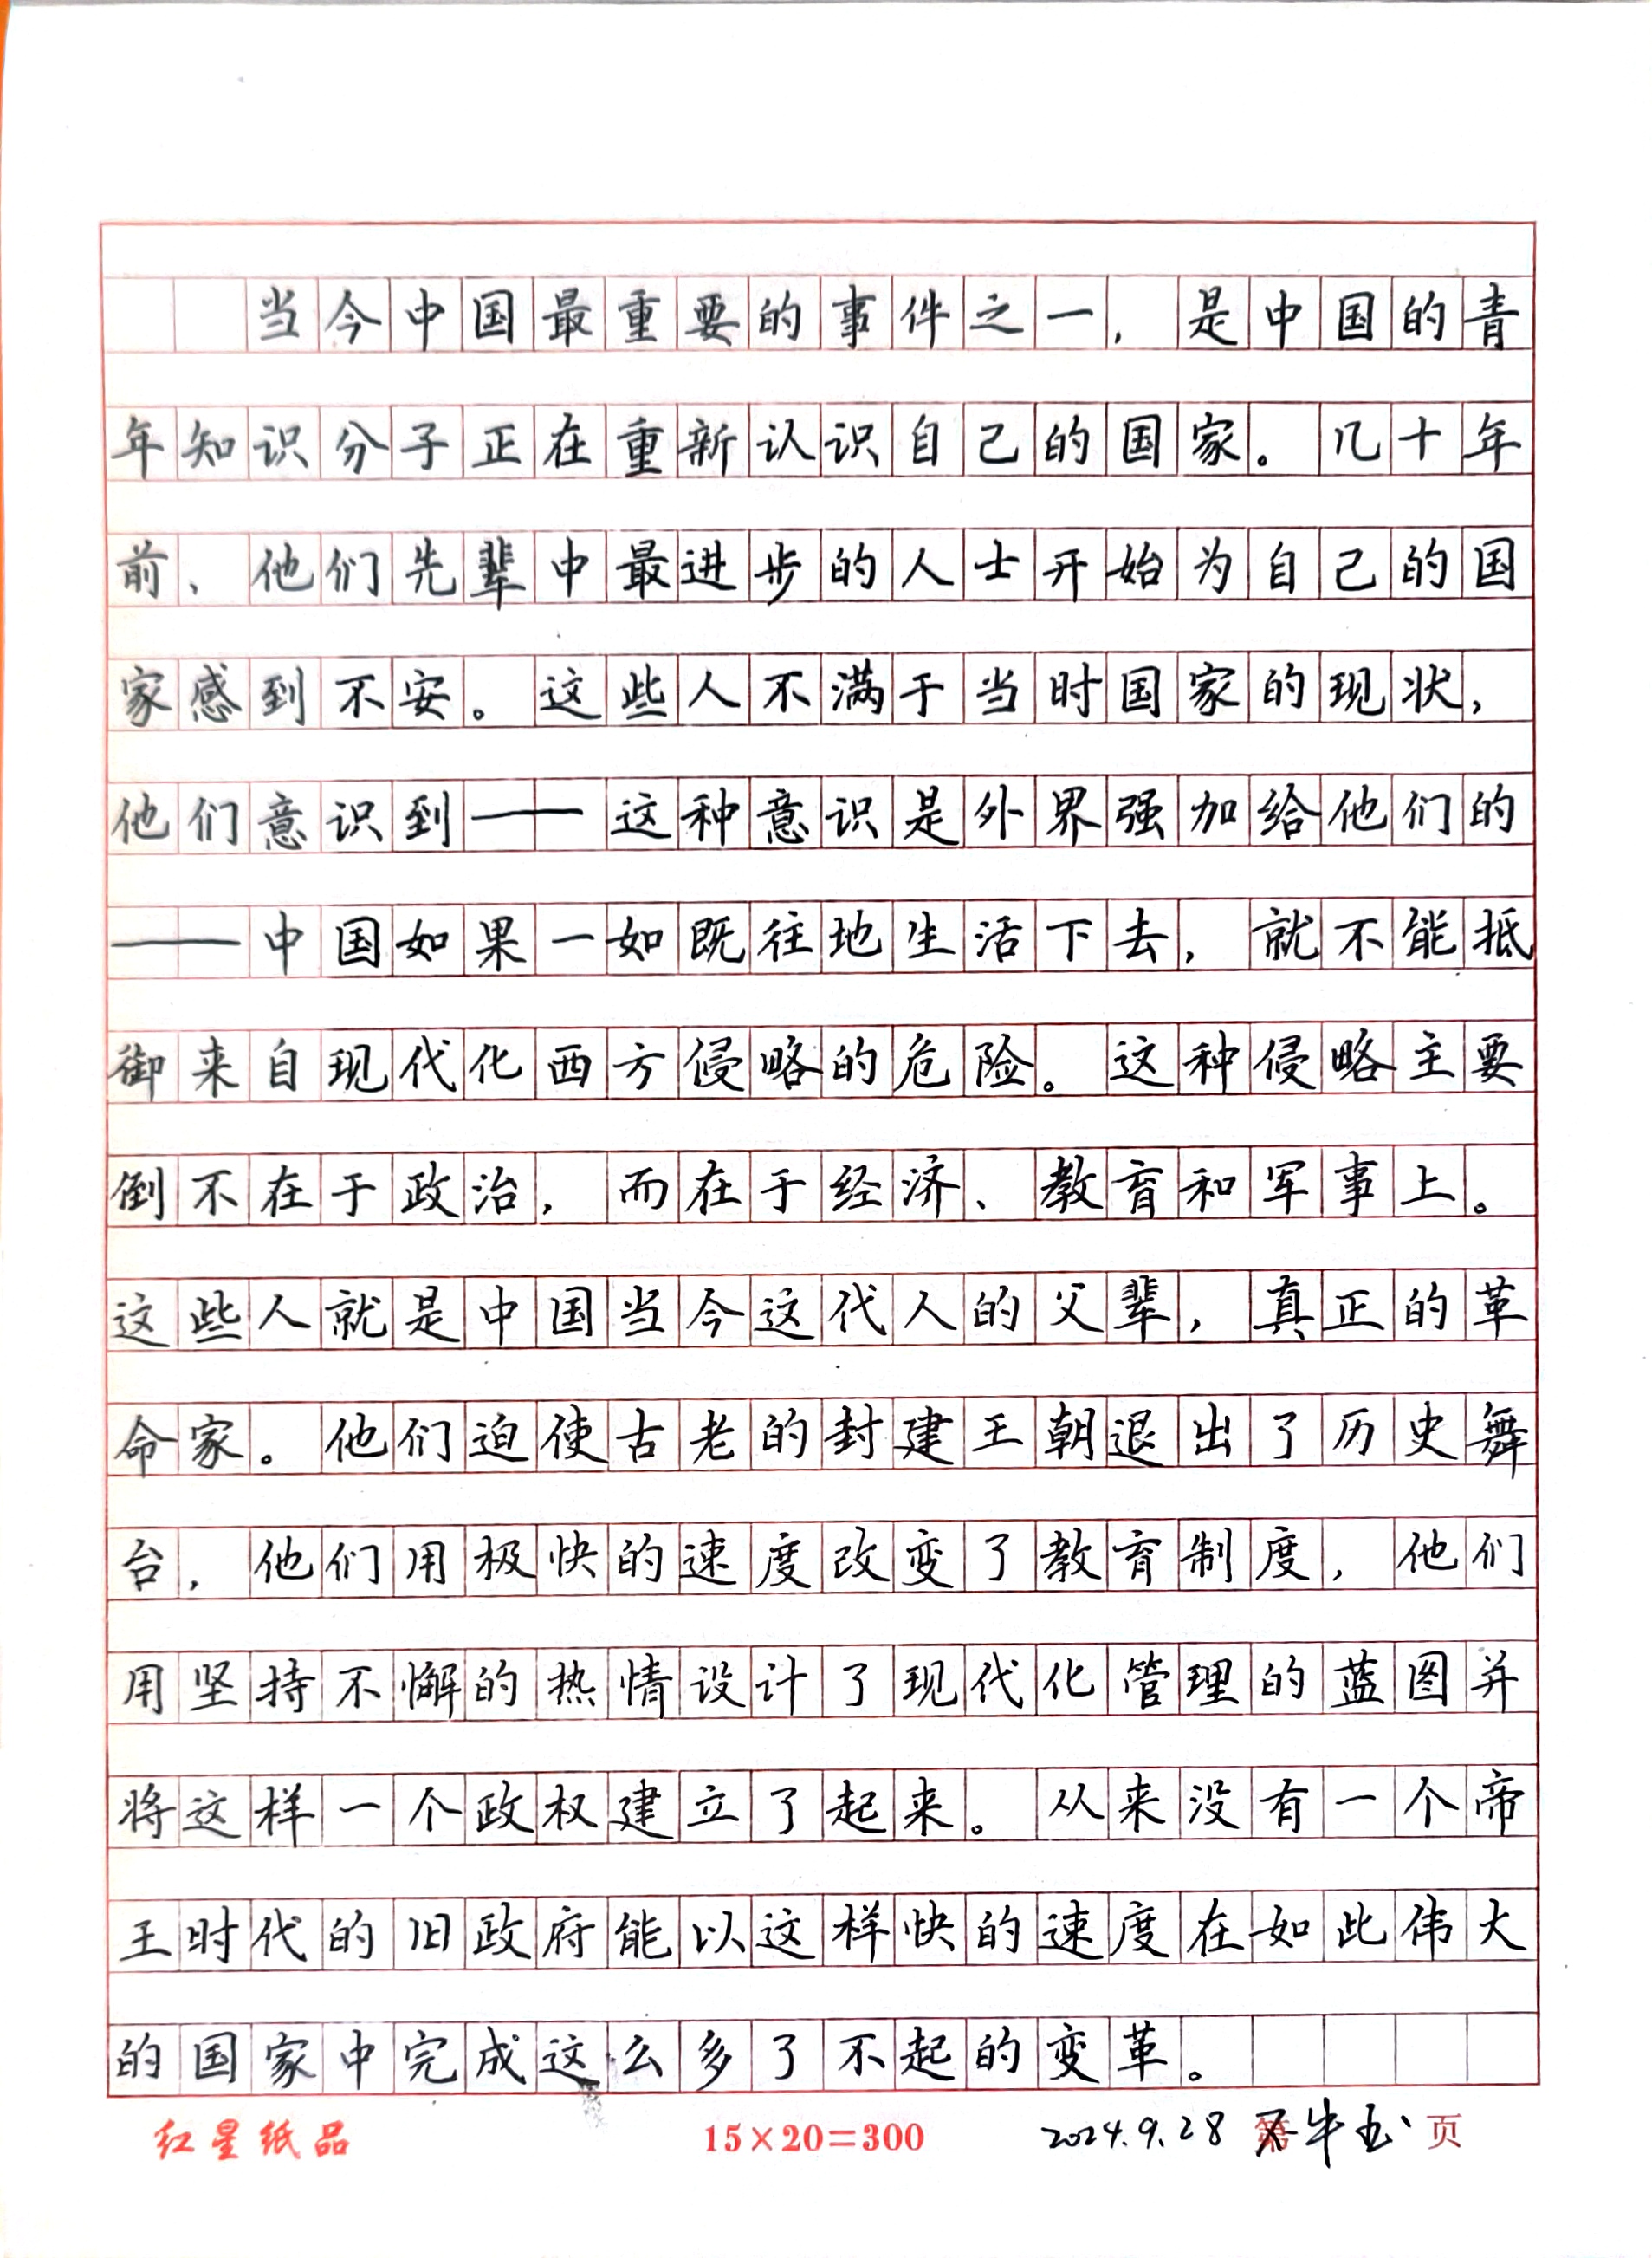 当今中国最重要的事件之一，是中国的青
年知识分子正在重新认识自己的国家。几十年
前、他们先辈中最进步的人士开始为自己的国
家感到不安。这些人不满于当时国家的现状，
他们意识到——这种意识是外界强加给他们的
——中国如果一如既往地生活下去，就不能抵
御来自现代化西方侵略的危险。这种侵略主要
倒不在于政治，而在于经济、教育和军事上。
这些人就是中国当今这代人的父辈，真正的革
命家。他们迫使古老的封建王朝退出了历史舞
台，他们用极快的速度改变了教育制度，他们
用坚持不懈的热情设计了现代化管理的蓝图并
将这样一个政权建立了起来。从来没有一个帝
王时代的旧政府能以这样快的速度在如此伟大
的国家中完成这么多了不起的变革。
红星纸品 15×20=300 2024.9.28 牛 页